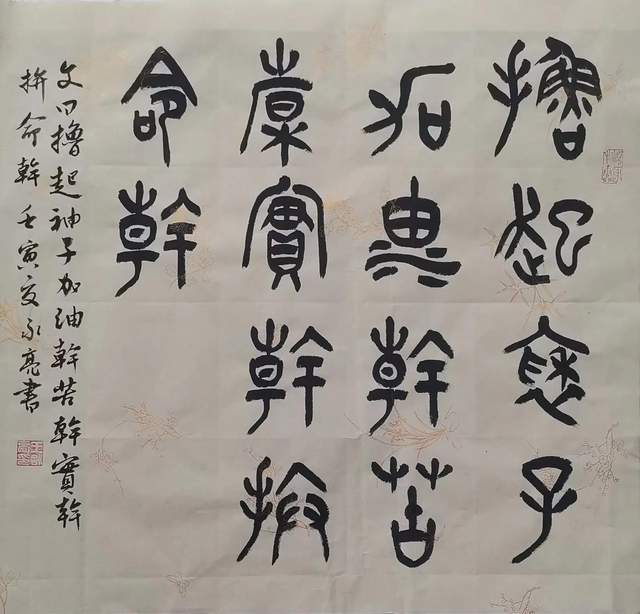 擼起袖子
加油幹苦
幹實幹拼
命幹
文曰擼起袖子加油幹苦幹實幹
拼命幹 壬寅夏永亮書